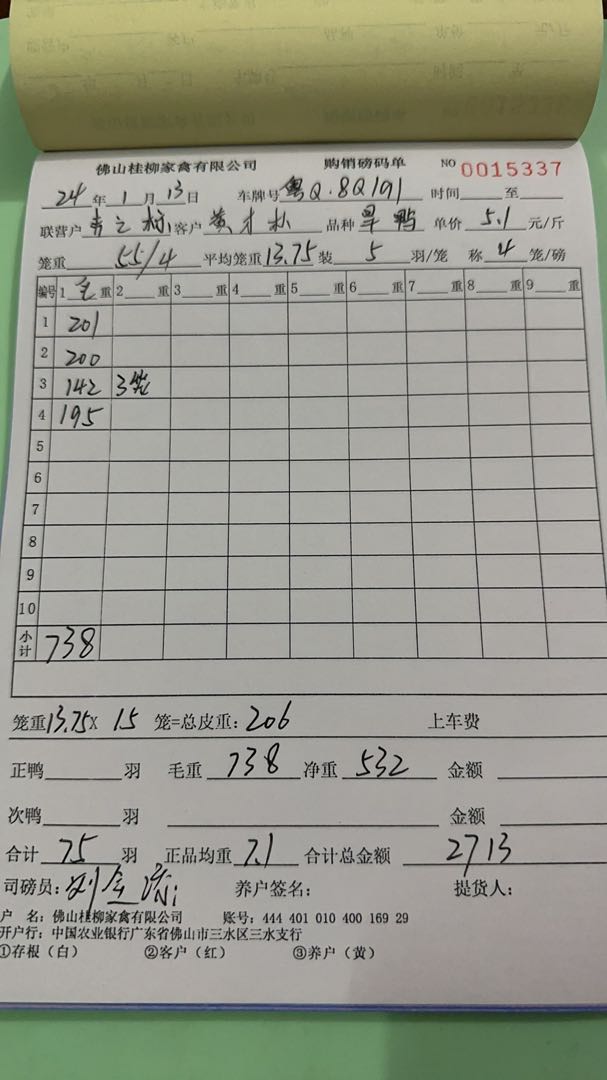 佛山桂柳家禽有限公司 购销磅码单 NO 0015337
24年1月13日 车牌号粤Q·8Q191 时间____至____
联营户 客户黄才 品种旱鸭 单价5.1元/斤
笼重55/4 平均笼重13.75装5羽/笼 称4笼/磅
编号 1毛重 2____重 3____重 4____重 5____重 6____重 7____重 8____重 9____重
1 201
2 200
3 142 3笼
4 195
5
6
7
8
9
10
小计 738
笼重13.75X 15 笼=总皮重：206 上车费
正鸭____羽 毛重738净重532 金额____
次鸭____羽 ____ 金额____
合计75羽 正品均重7.1 合计总金额2713
司磅员：刘 养户签名： 提货人：
户 名：佛山桂柳家禽有限公司 账号：444 401 010 400 169 29
开户行：中国农业银行广东省佛山市三水区三水支行
①存根（白） ②客户（红） ③养户（黄）